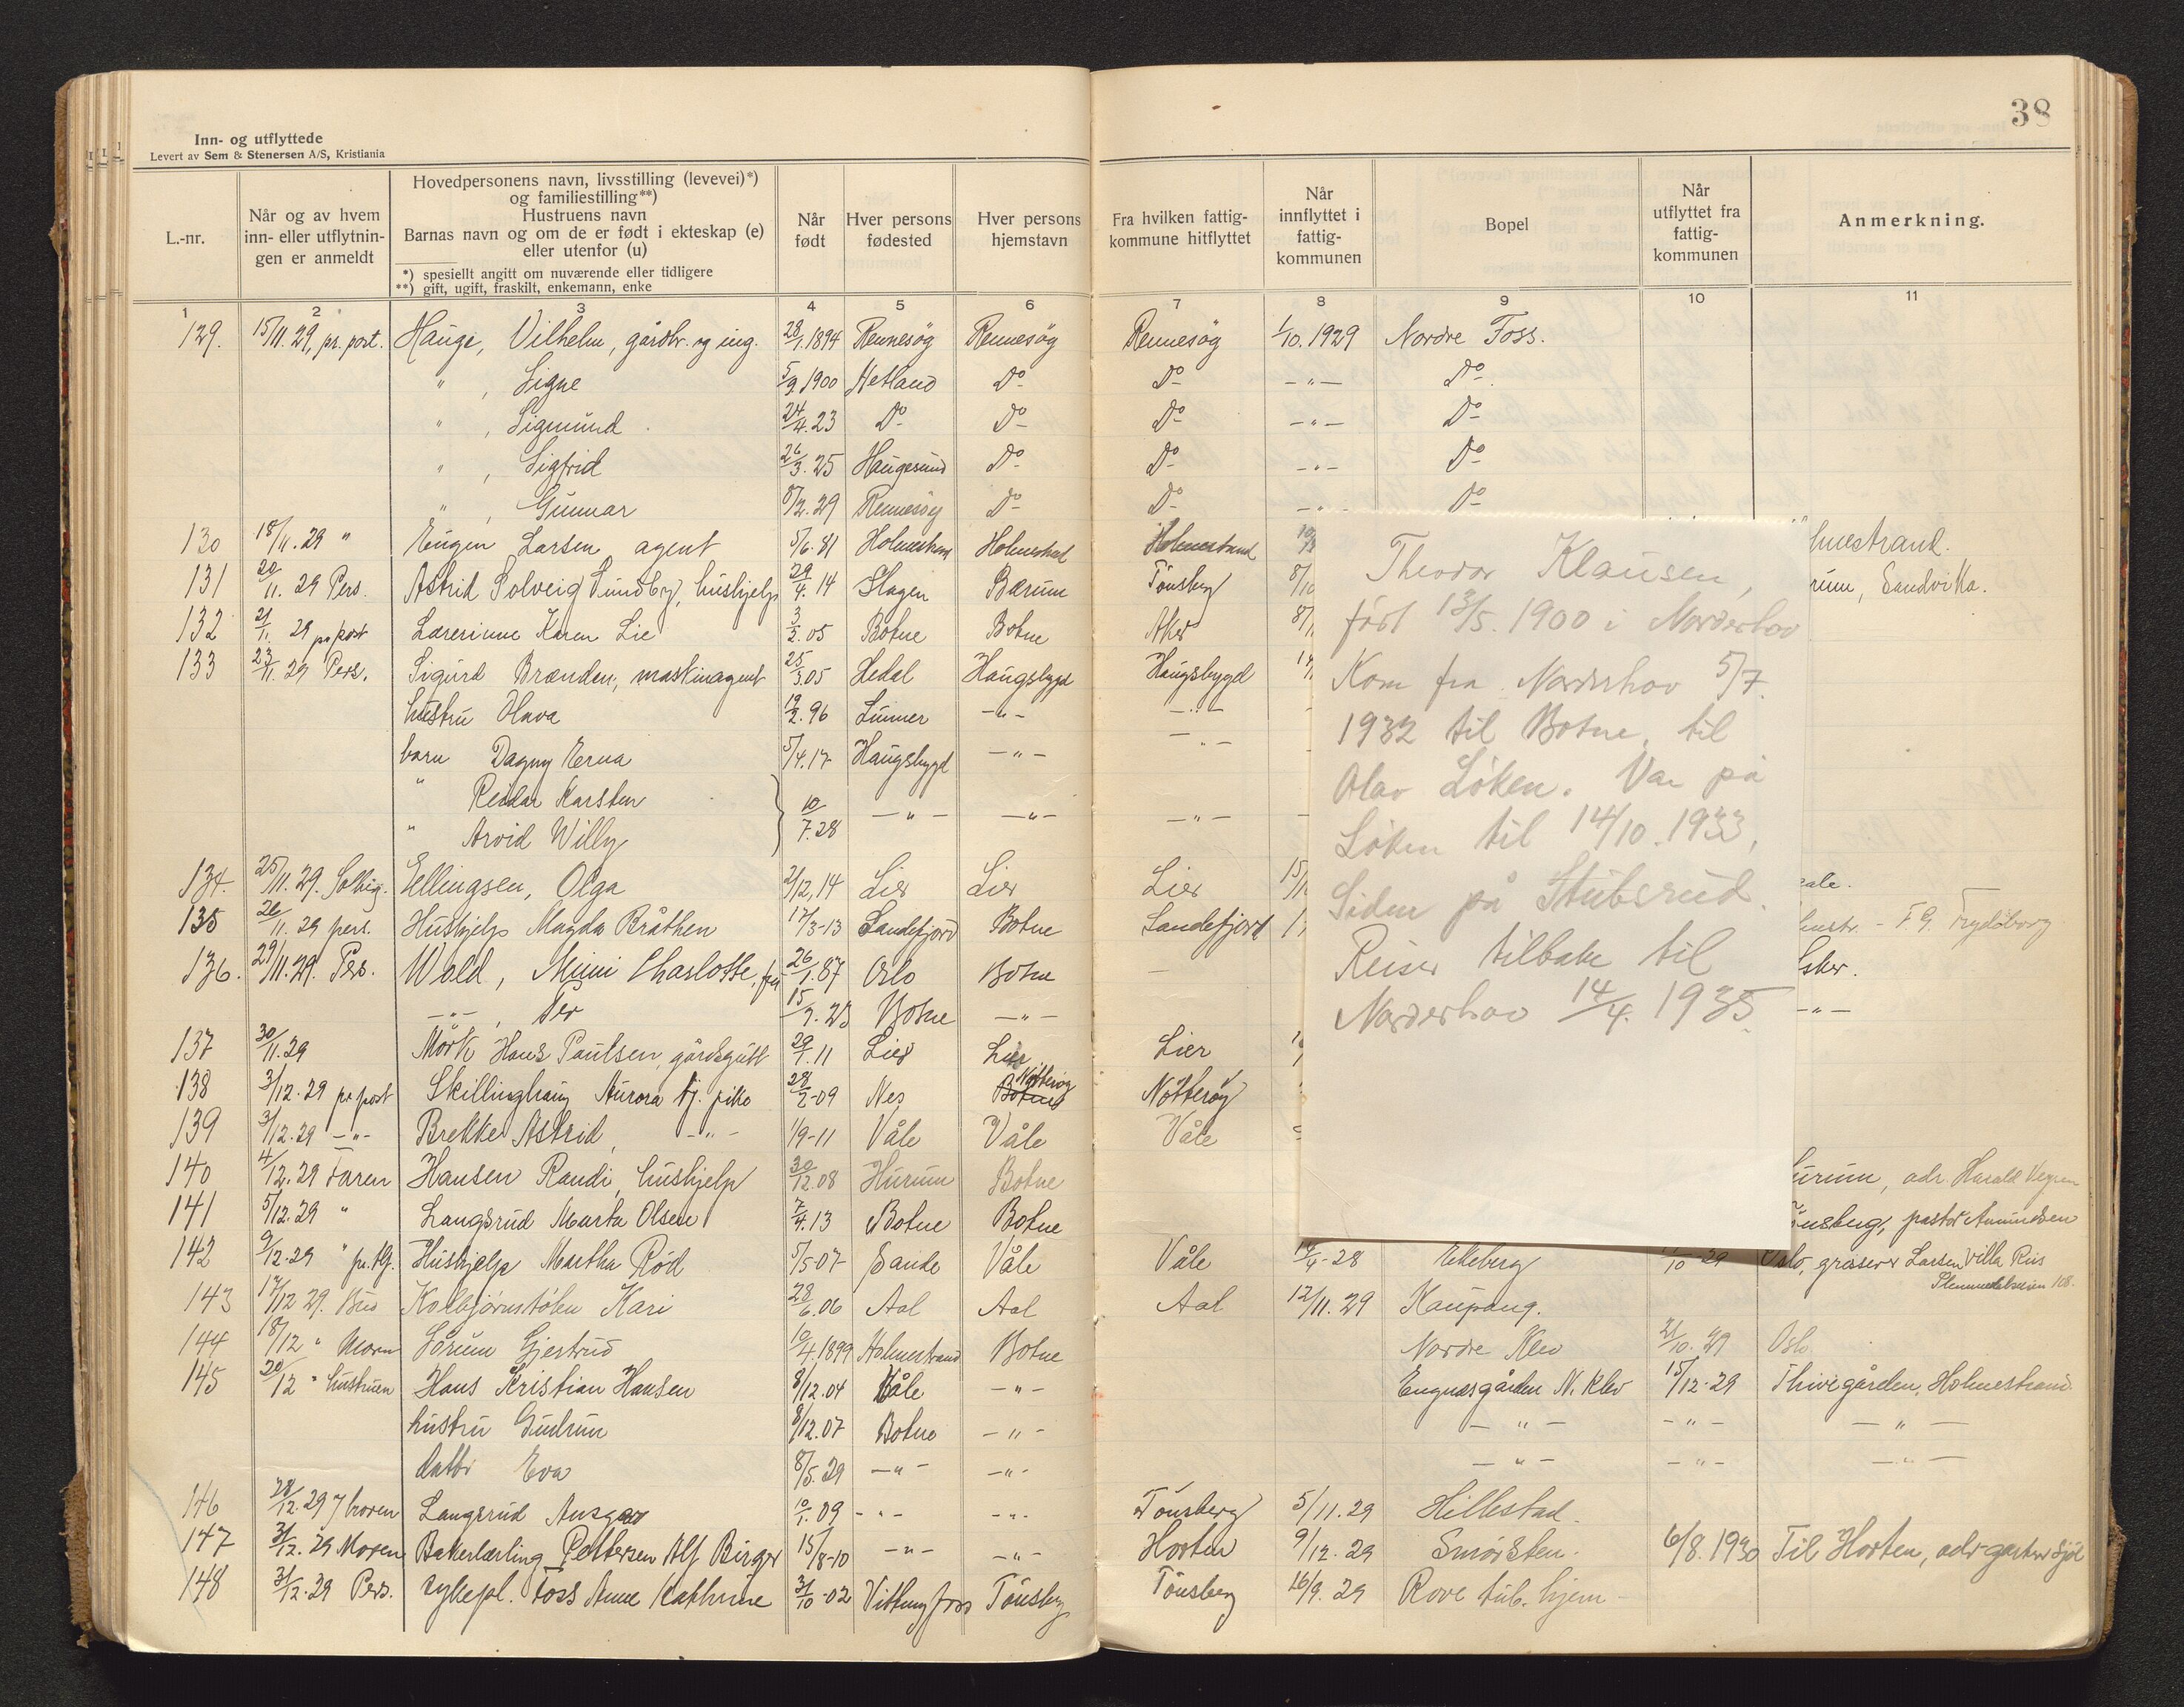 38
Inn- og utflyttede
Levert av Sem & Stenersen A/S, Kristiania
L.-nr.
Når og av hvem inn- eller utflytnin-gen er anmeldt
Hovedpersonens navn, livsstilling (levevei)*) og familiestilling**)
Hustruens navn
Barnas navn og om de er født i ekteskap (e) eller utenfor (u)
*) spesiellt angitt om nuværende eller tidligere
**) gift, ugift, fraskilt, enkemann, enke
Når født
Hver persons fødested
Hver persons hjemstavn
Fra hvilken fattig-kommune hitflyttet
Når innflyttet i fattig-kommunen
Bopel
Når utflyttet fra fattig-kommunen
Anmerkning.
1 2 3 4 5 6 7 8 9 10 11
129. 15/11.29, pr. post. Hauge, Vilhelm, gårdbr. og ing. 28/1.1894 Rennesøy Rennesøy Rennesøy 1/10.1929 Nordre Foss.
" , Signe 5/9 1900 Hetland Do Do -"- Do
" , Sigmund 24/4.23 Do Do Do -"- Do
" , Sigfrid 26/3.25 Haugesund Do Do -"- Do
" , Gunnar 8/2.29 Rennesøy Do Do -"- Do
130 18/11.29 " Eugen Larsen agent 5/6.81 Holmestrand Holmestrand Holmestrand lmestrand.
131 20/11.29 Pers. Astrid Solveig Sundby, hushjelp 29/4.14 Slagen Bærum Tønsberg 8/10 rum, Sandvika.
132 21/11.29 pr post Lærerinne Karen Lie 3/2.05 Botne Botne Aker
133 23/11.29 Pers. Sigurd Brænden, maskinagent 25/3.05 Hedal Haugsbygd Haugsbygd
hustru Olava 19/2.96 Lunner -"- -"-
barn Dagny Erna 5/4.17 Haugsbygd -"- -"-
" Reidar Karsten
" Arvid Willy 10/7.28 -"- -"- -"-
134. 25/11.29. Ellingsen, Olga 2/12.14 Lier Lier Lier
135 26/11.29 pers. Hushjelp Magda Bråthen 17/3-13 Sandefjord Botne Sandefjord
136. 29/11.29. Pers. Wold, Mimi Charlotte, fru 26/1.87 Oslo Botne -
-"- , Per 15/7.23 Botne -"- -"-
137 30/11.29 Mörk Hans Paulsen, gårdsgutt 29/1.11 Lier Lier Lier
138 3/12.29 pr post Skillinghaug Aurora tj. pike 28/2-09 Nes Botne Nøtterøy Nøtterøy
139 3/12.29 -"- Brekke Astrid, -"- 1/9-11 Våle Våle Våle
140 4/12.29 Faren Hansen Randi, hushjelp 30/12.08 Hurum Botne urum, adr. Harald
141 5/12.29 " Langsrud Marta Olsen 7/4.13 Botne Botne ønsberg, pastor Amundsen
142 9/12.29 " Hushjelp Martha Röd 5/5-07 Sande Våle Våle 14/4-28 Ekeberg Oslo, grosserer Larsen Villa Riis
143 17/12 29. Bud Kolbjørnstølen Kari 28/6.06 Aal Aal Aal 12/11.29 Kaupang.
144 18/12 " Moren Sörum Gjertrud 10/4.1899 Holmestrand Botne Nordre Klev 21/10.29 Oslo
145 20/12 " hustruen Hans Kristian Hansen 8/12.04 Våle -"- Engnesgården N. Klev 15/12-29 Thivegården, Holmestrand.
hustru Gudrun 8/12.07 Botne -"- -"- -"- -"-
datter Eva 8/5.29 -"- -"- -"- -"- -"-
146 28/12.29 Langsrud Ansgar 10/1.09 -"- -"- Tønsberg 5/11.29 Hillestad.
147 31/12.29 Moren Bakerlærling Pettersen Alf Birger 15/8-10 -"- -"- Horten 9/12.29 Smørsten. 6/8.1930 Til Horten,
148 31/12.29 Pers. sykepl. Foss Anne Kathrine 31/10-02 Vittingfoss Tønsberg Tønsberg 16/9.29 Rove tub. hjem
Theodor Klausen,
født 13/5.1900 i Norderhov
Kom fra Norderhov 5/7.
1932 til Botne, til
Olav Löken. Var på
Löken til 14/10.1933,
Siden på Stubsrud.
Reiser tilbake til
Norderhov 14/4.1935.